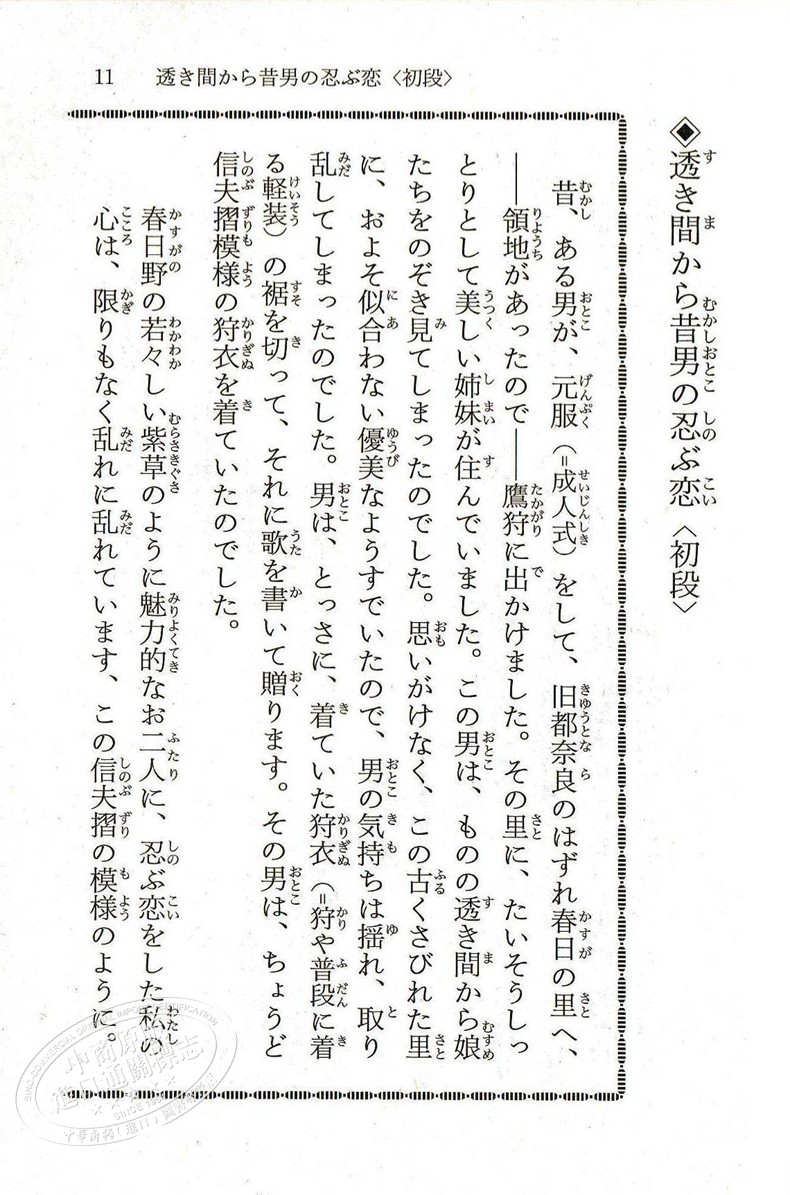 11 透き間から昔男の忍ぶ恋〈初段〉
◈透き間から昔男の忍ぶ恋〈初段〉
昔、ある男が、元服（=成人式）をして、旧都奈良のはずれ春日の里へ、
――領地があったので――鷹狩に出かけました。その里に、たいそうしっ
とりとして美しい姉妹が住んでいました。この男は、ものの透き間から娘
たちをのぞき見てしまったのでした。思いがけなく、この古くさびれた里
に、およそ似合わない優美なようすでいたので、男の気持ちは揺れ、取り
乱してしまったのでした。男は、とっさに、着ていた狩衣（=狩や普段に着
る軽装）の裾を切って、それに歌を書いて贈ります。その男は、ちょうど
信夫摺模様の狩衣を着ていたのでした。
春日野の若々しい紫草のように魅力的なお二人に、忍ぶ恋をした私の
心は、限りもなく乱れに乱れています、この信夫摺の模様のように。